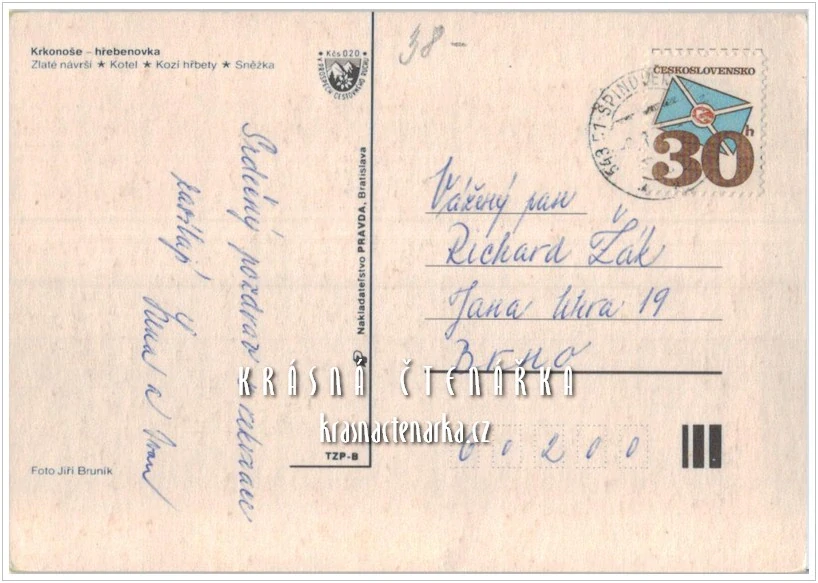 Krkonoše – hřebenovka
Zlaté návrší ★ Kotel ★ Kozí hřbety ★ Sněžka
Kčs 0,20
38-
ČESKOSLOVENSKO
30h
543 51 ŠPINDLER
Srdečný pozdrav z rekreace
zasílají
a Ivan
Nakladatelstvo PRAVDA, Bratislava
Vážený pan
Richard Žák
Jana Uhra 19
BRNO
KRÁSNÁ ČTENÁŘKA
krasnactenarka.cz
60200
TZP-B
Foto Jiří Bruník